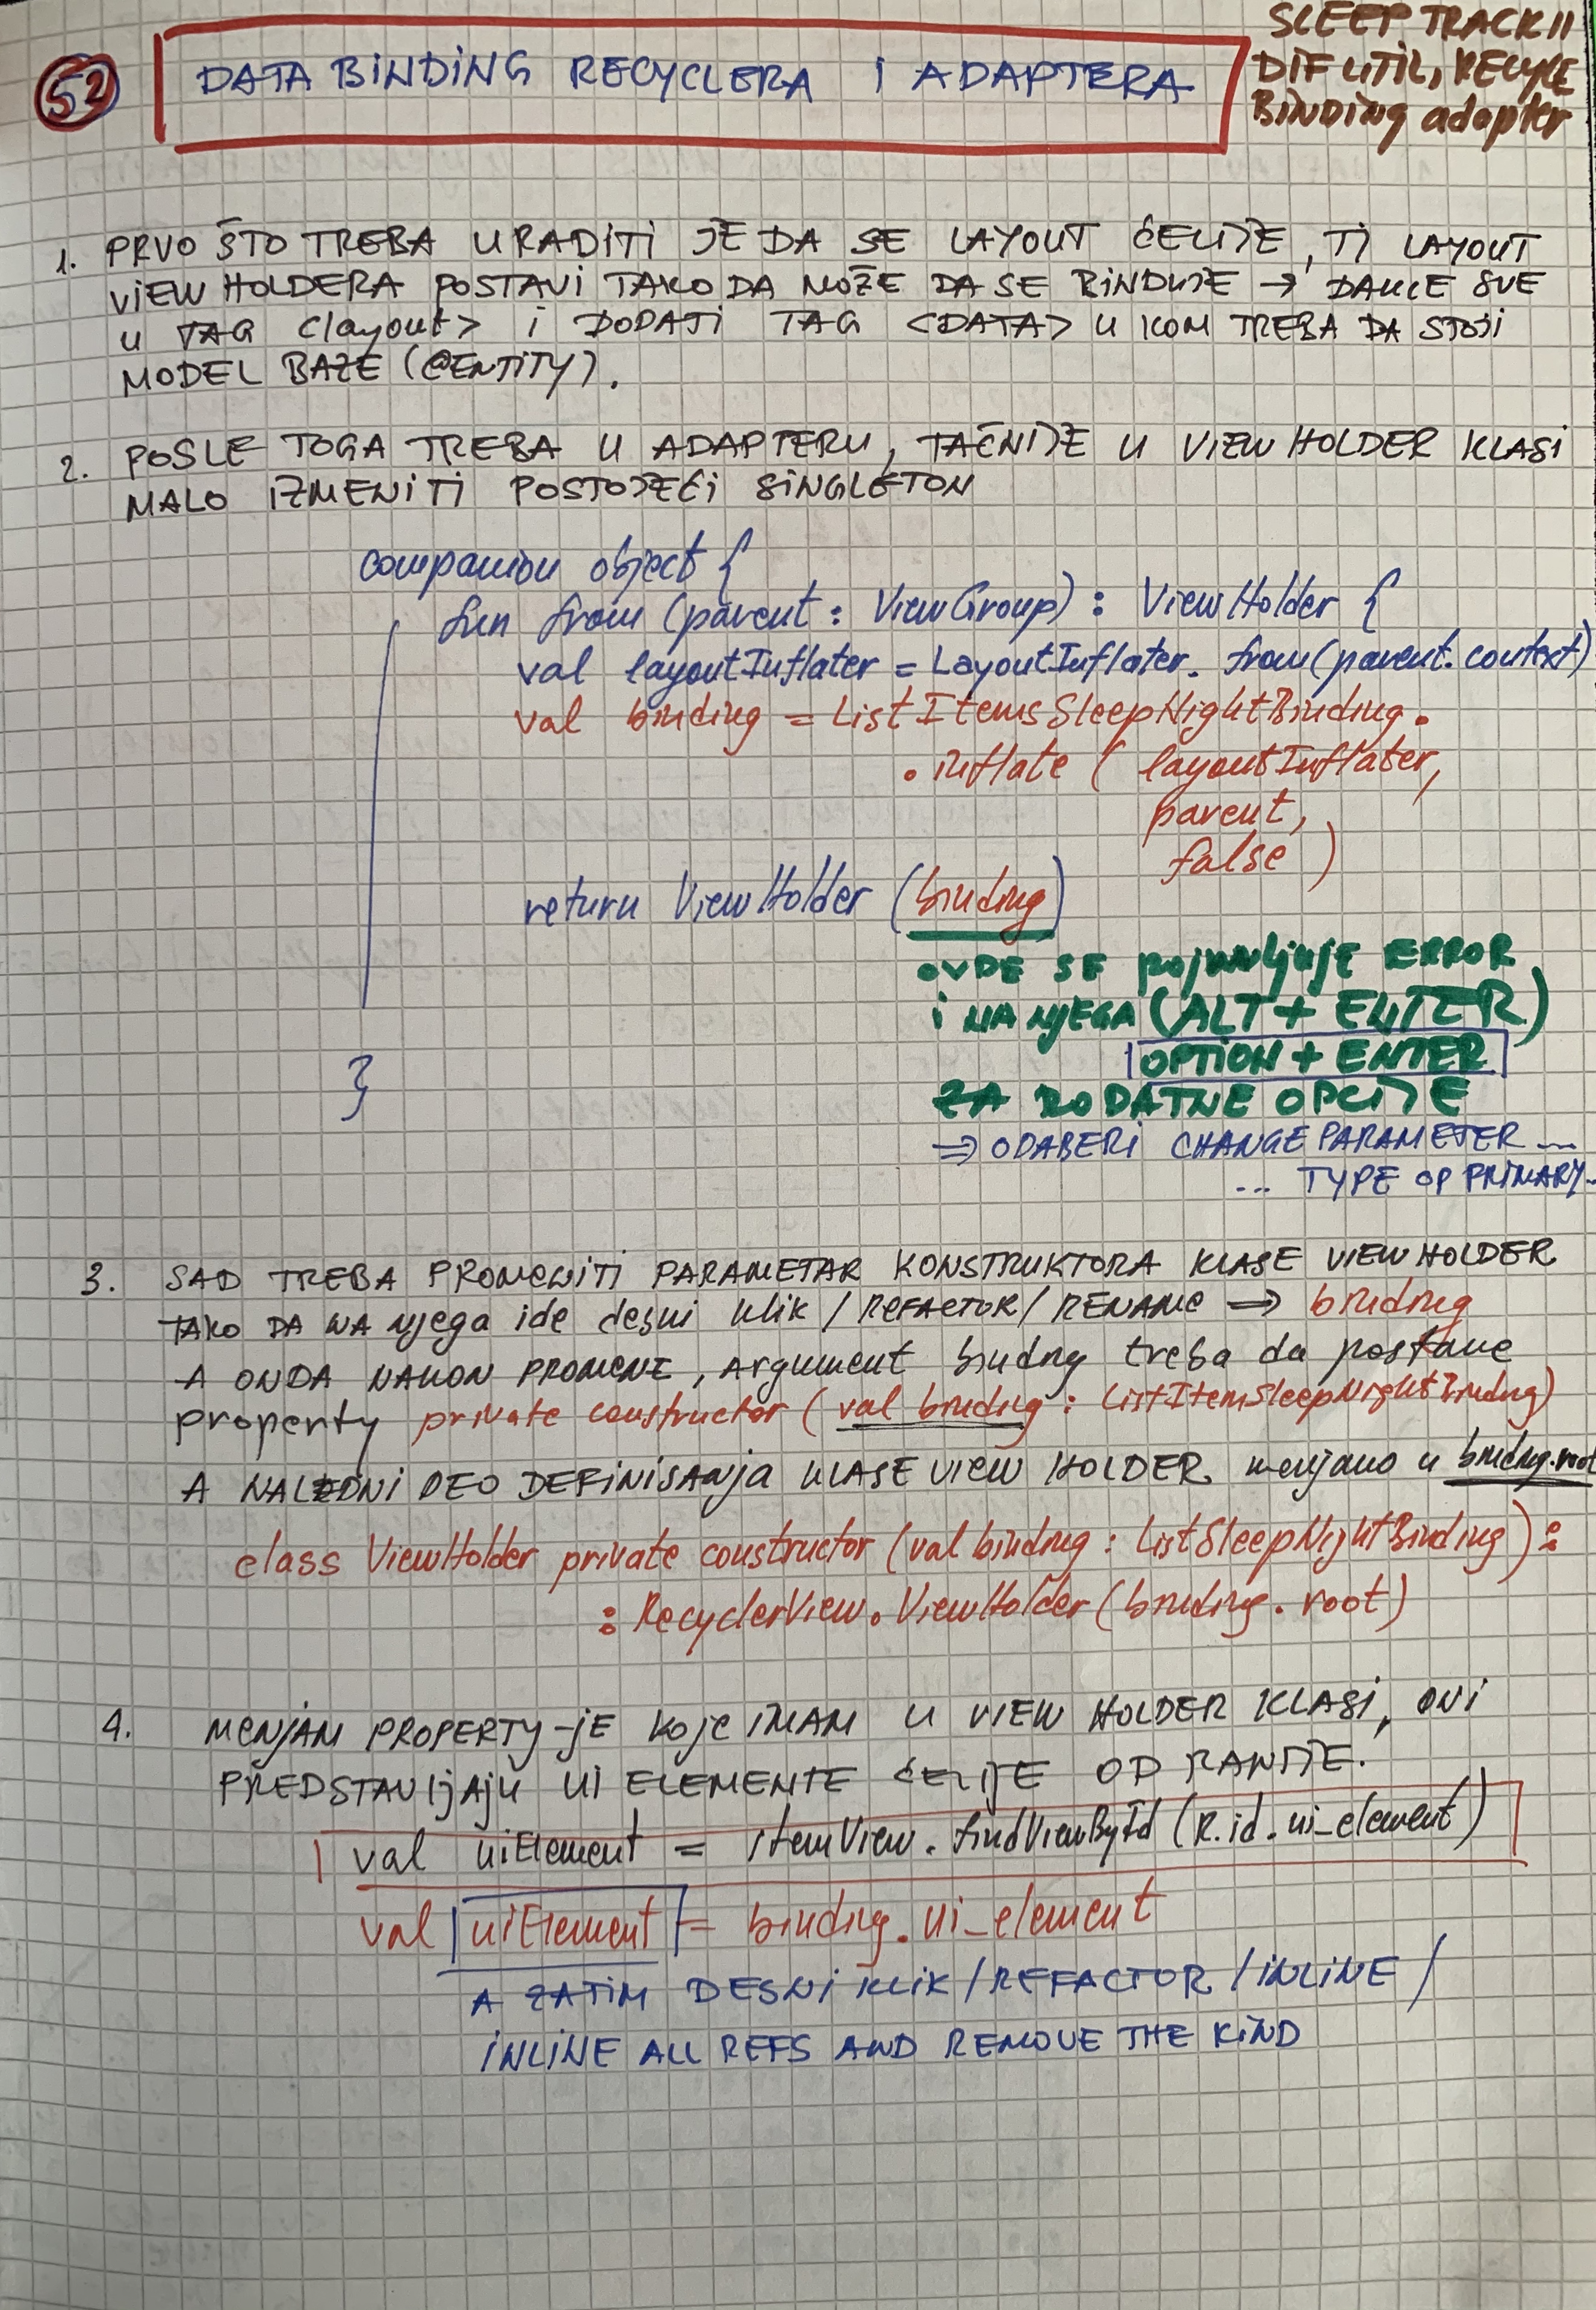 52
DATA BINDING RECYCLERA I ADAPTERA
SLEEP TRACK II
DIF UTIL, RECYCLE
BINDING adapter
1. PRVO ŠTO TREBA URADITI JE DA SE LAYOUT ĆELIJE, TJ LAYOUT
VIEW HOLDERA POSTAVI TAKO DA MOŽE DA SE BINDUJE → DAKLE SVE
U TAG <layout> i DODATI TAG <DATA> U KOM TREBA DA STOJI
MODEL BAZE (@ENTITY).
2. POSLE TOGA TREBA U ADAPTERU, TAČNIJE U VIEW HOLDER KLASI
MALO IZMENITI POSTOJEĆI SINGLETON
companion object {
fun from (parent : ViewGroup) : ViewHolder {
val layoutInflater = LayoutInflater. from(parent.context)
val binding = ListItemsSleepNightBinding.
. inflate ( layoutInflater,
parent,
false )
return ViewHolder (binding)
}
OVDE SE pojavljuje ERROR
I NA NJEGA (ALT + ENTER)
OPTION + ENTER
ZA DODATNE OPCIJE
⇒ ODABERI CHANGE PARAMETER ...
... TYPE OP PRIMARY...
3. SAD TREBA PROMENITI PARAMETAR KONSTRUKTORA KLASE VIEW HOLDER
TAKO DA NA njega ide desni klik / REFACTOR / RENAME ⇒ binding
A ONDA NAKON PROMENE, Argument binding treba da postane
property private constructor ( val binding : ListItemSleepNightBinding)
A NALEDNI DEO DEFINISANJA KLASE VIEW HOLDER menjamo u binding.root
class ViewHolder private constructor (val binding : ListSleepNightBinding) :
: RecyclerView.ViewHolder (binding. root)
4. MENJAM PROPERTY-JE koje IMAM U VIEW HOLDER KLASI, ONI
PREDSTAVLJAJU UI ELEMENTE ĆELIJE OD RANIJE.
val uiElement = itemView. findViewById (R.id.ui_element)
val uiElement = binding. ui_element
A ZATIM DESNI KLIK / REFACTOR / INLINE /
INLINE ALL REFS AND REMOVE THE KIND